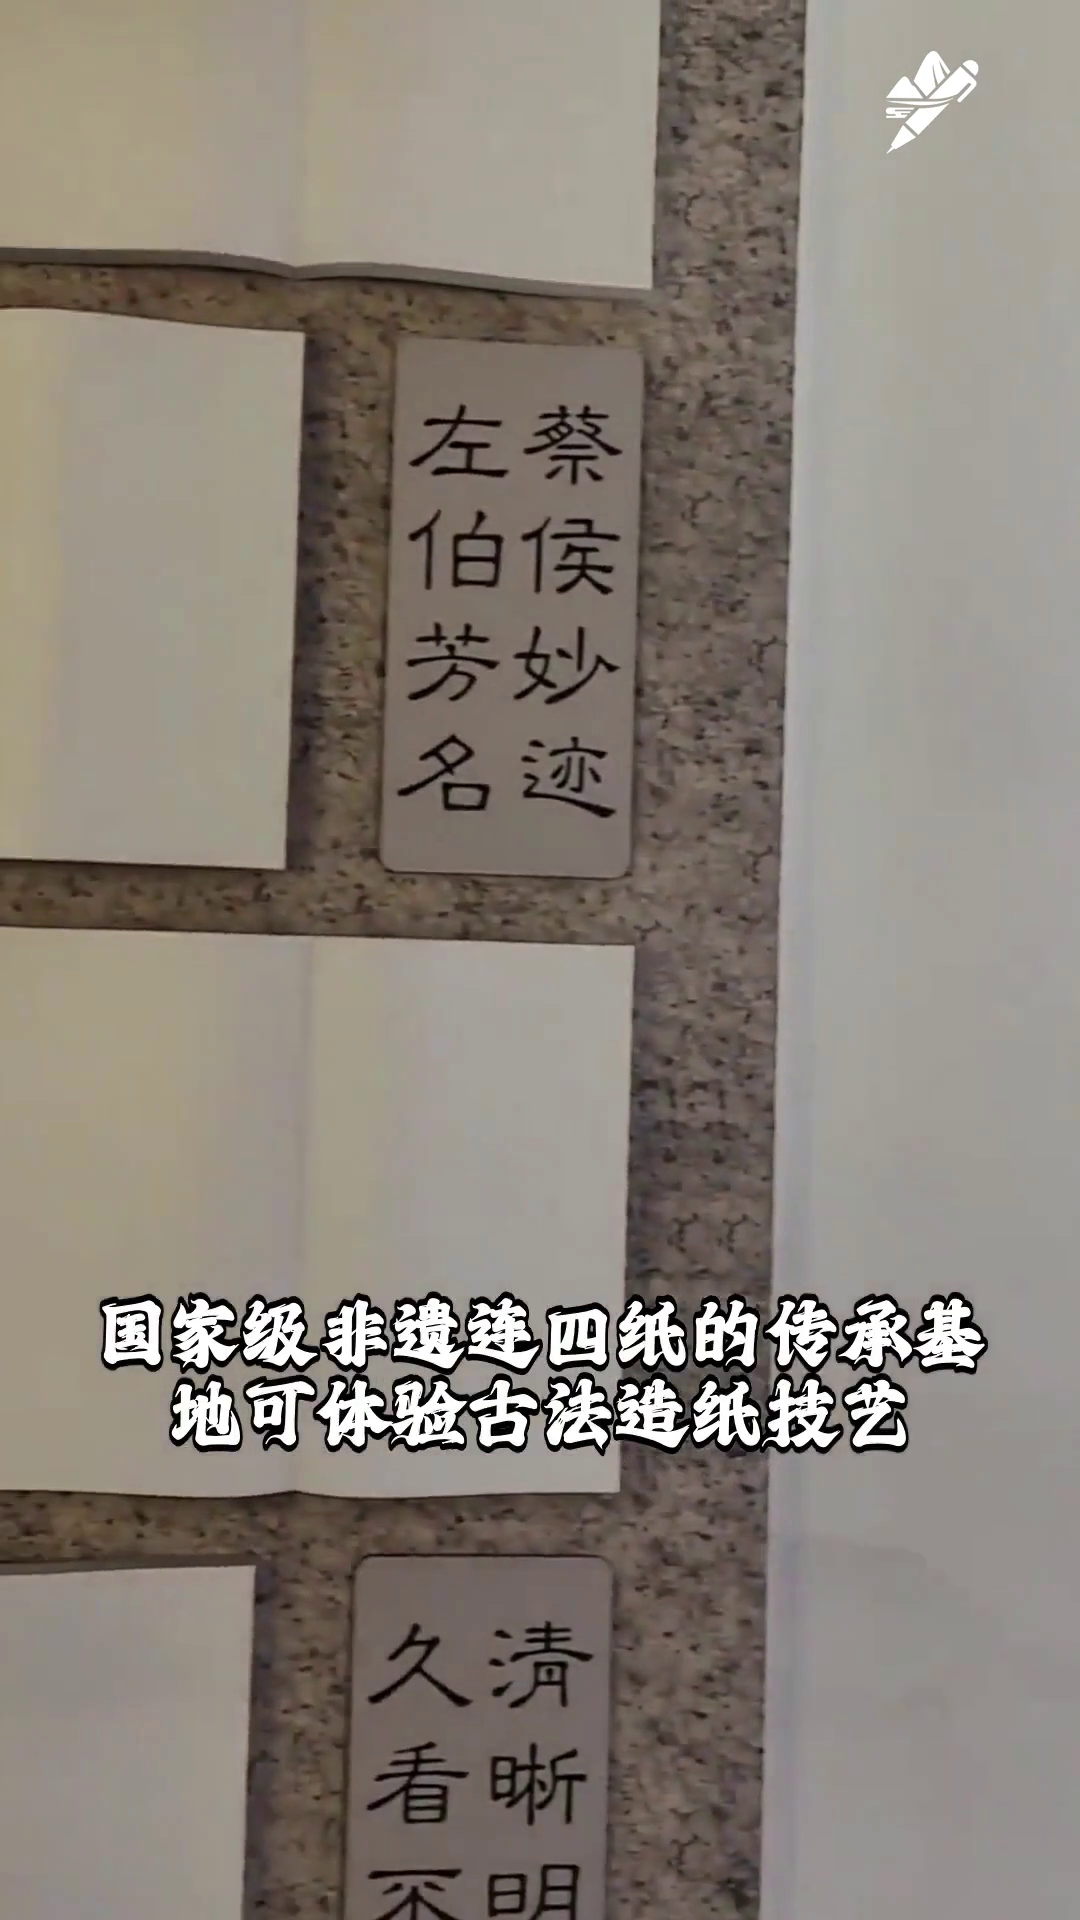 蔡侯妙迹
左伯芳名
国家级非遗连四纸的传承基
地可体验古法造纸技艺
清晰明
久看不